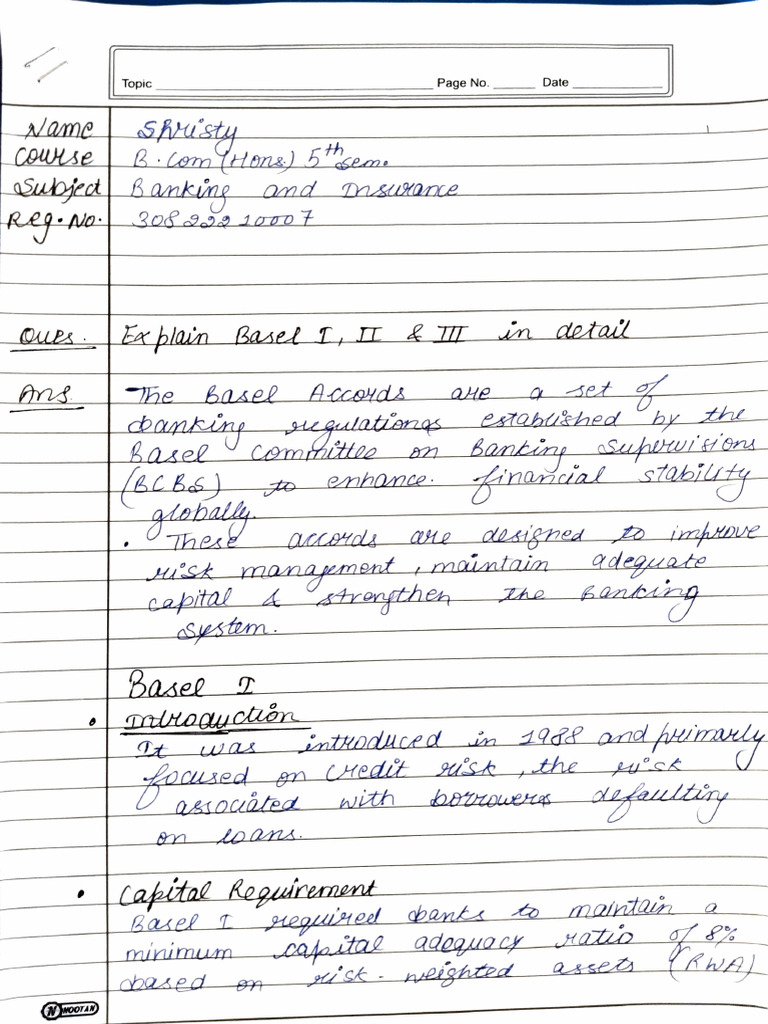 Topic Page No. Date
Name Shristy
Course B.Com (Hons.) 5th Sem.
Subject Banking and Insurance
Reg. No. 308 222 10007
Ques. Explain Basel I, II & III in detail
Ans The Basel Accords are a set of
banking regulations established by the
Basel Committee on Banking Supervisions
(BCBS) to enhance. financial stability
globally.
• These accords are designed to improve
risk management, maintain adequate
capital & strengthen the Banking
system.
Basel I
• Introduction
It was introduced in 1988 and primarly
focused on credit risk, the risk
associated with borrowers defaulting
on loans.
• Capital Requirement
Basel I required banks to maintain a
minimum capital adequacy ratio of 8%
based on risk-weighted assets (RWA)
N NOOTAN